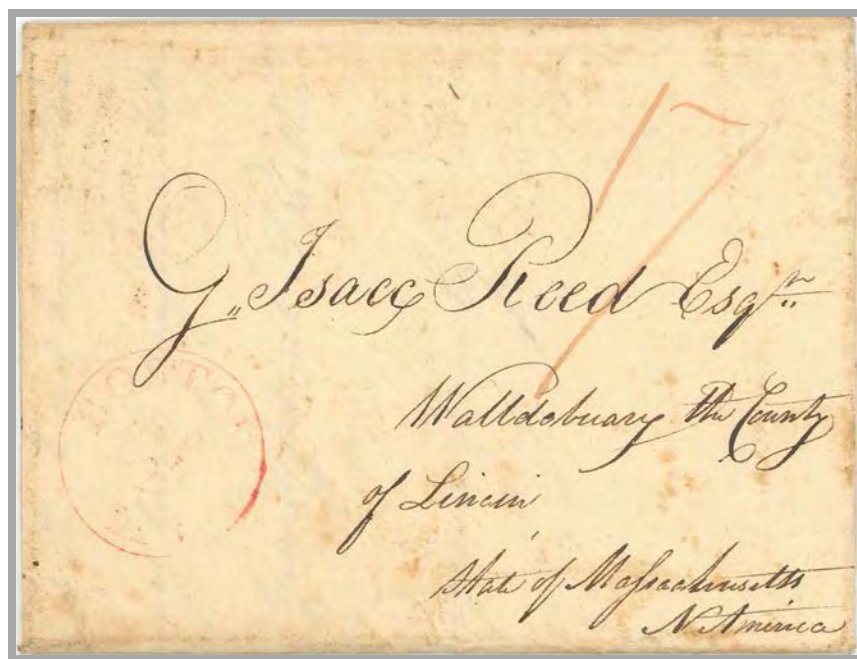 17
G,, Isacc Reed Esqr,,
Walldobuary the County
of Lincin
State of Massachusetts
N America
BOSTON